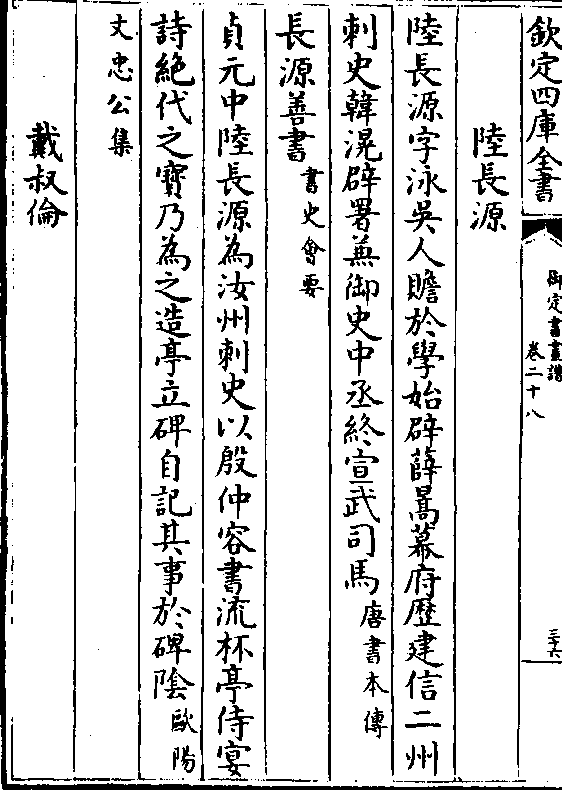 欽定四庫全書
御定書畫譜
卷二十八
三十六
陸長源
陸長源字泳吳人贍於學始辟薛暠幕府歴建信二州
刺史韓滉辟署兼御史中丞終宣武司馬唐書本傳
長源善書書史會要
貞元中陸長源為汝州刺史以殷仲容書流杯亭侍宴
詩絕代之寳乃為之造亭立碑自記其事於碑隂歐陽
文忠公集
戴叔倫